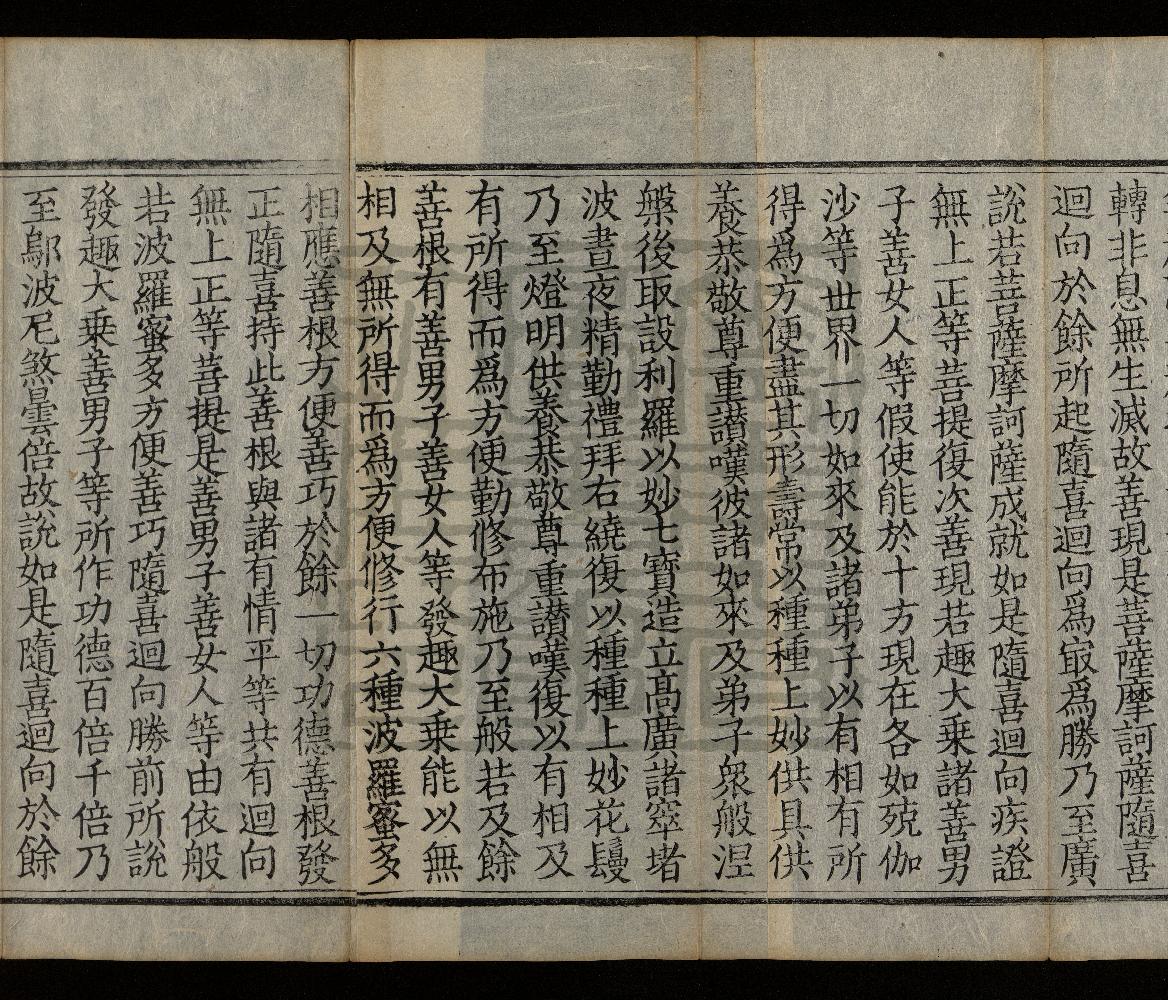 轉非息無生滅故善現是菩薩摩訶薩隨喜
迴向於餘所起隨喜迴向爲㝡爲勝乃至廣
說若菩薩摩訶薩成就如是隨喜迴向疾證
無上正等菩提復次善現若趣大乘諸善男
子善女人等假使能於十方現在各如殑伽
沙等世界一切如來及諸弟子以有相有所
得爲方便盡其形壽常以種種上妙供具供
養恭敬尊重讃嘆彼諸如來及弟子衆般涅
槃後取設利羅以妙七寶造立髙廣諸窣堵
波晝夜精勤禮拜右繞復以種種上妙花鬘
乃至燈明供養恭敬尊重讃嘆復以有相及
有所得而爲方便勤修布施乃至般若及餘
善根有善男子善女人等發趣大乘能以無
相及無所得而爲方便修行六種波羅蜜多
相應善根方便善巧於餘一切功德善根發
正隨喜持此善根與諸有情平等共有迴向
無上正等菩提是善男子善女人等由依般
若波羅蜜多方便善巧隨喜迴向勝前所說
發趣大乘善男子等所作功德百倍千倍乃
至鄔波尼煞曇倍故說如是隨喜迴向於餘